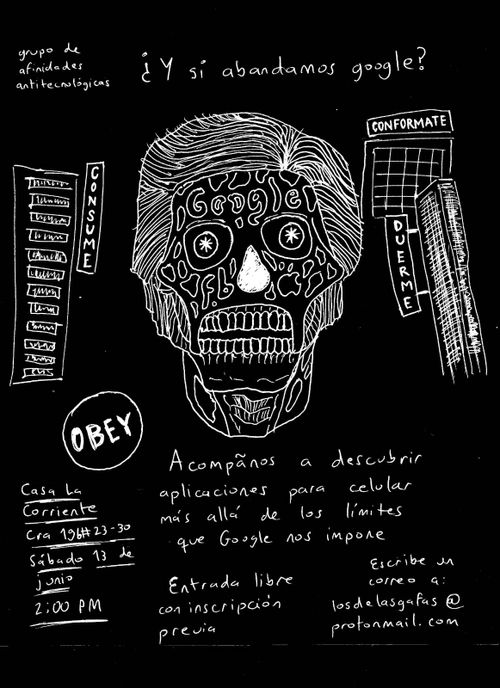 grupo de
afinidades
antitecnológicas
¿Y si abandamos google?
CONFORMATE
CONSUME
DUERME
Google
fb
OBEY
Acompãños a descubrir
aplicaciones para celular
más allá de los límites
que Google nos impone
Casa La
Corriente
Cra 19b#23-30
Sábado 13 de
junio
2:00 PM
Entrada libre
con inscripción
previa
Escribe un
correo a:
losdelasgafas@
protonmail.com